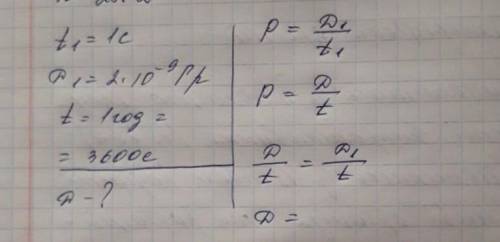 t₁ = 1с
D₁ = 2·10⁻⁹ Гр
t = 1год =
= 3600с
D - ?
P = D₁/t₁
P = D/t
D/t = D₁/t
D =